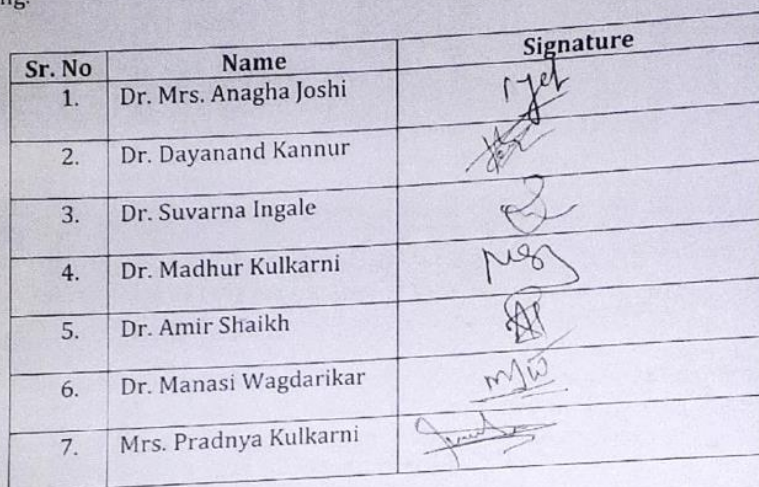 ng.
Sr. No Name Signature
1. Dr. Mrs. Anagha Joshi
2. Dr. Dayanand Kannur
3. Dr. Suvarna Ingale
4. Dr. Madhur Kulkarni
5. Dr. Amir Shaikh
6. Dr. Manasi Wagdarikar
7. Mrs. Pradnya Kulkarni